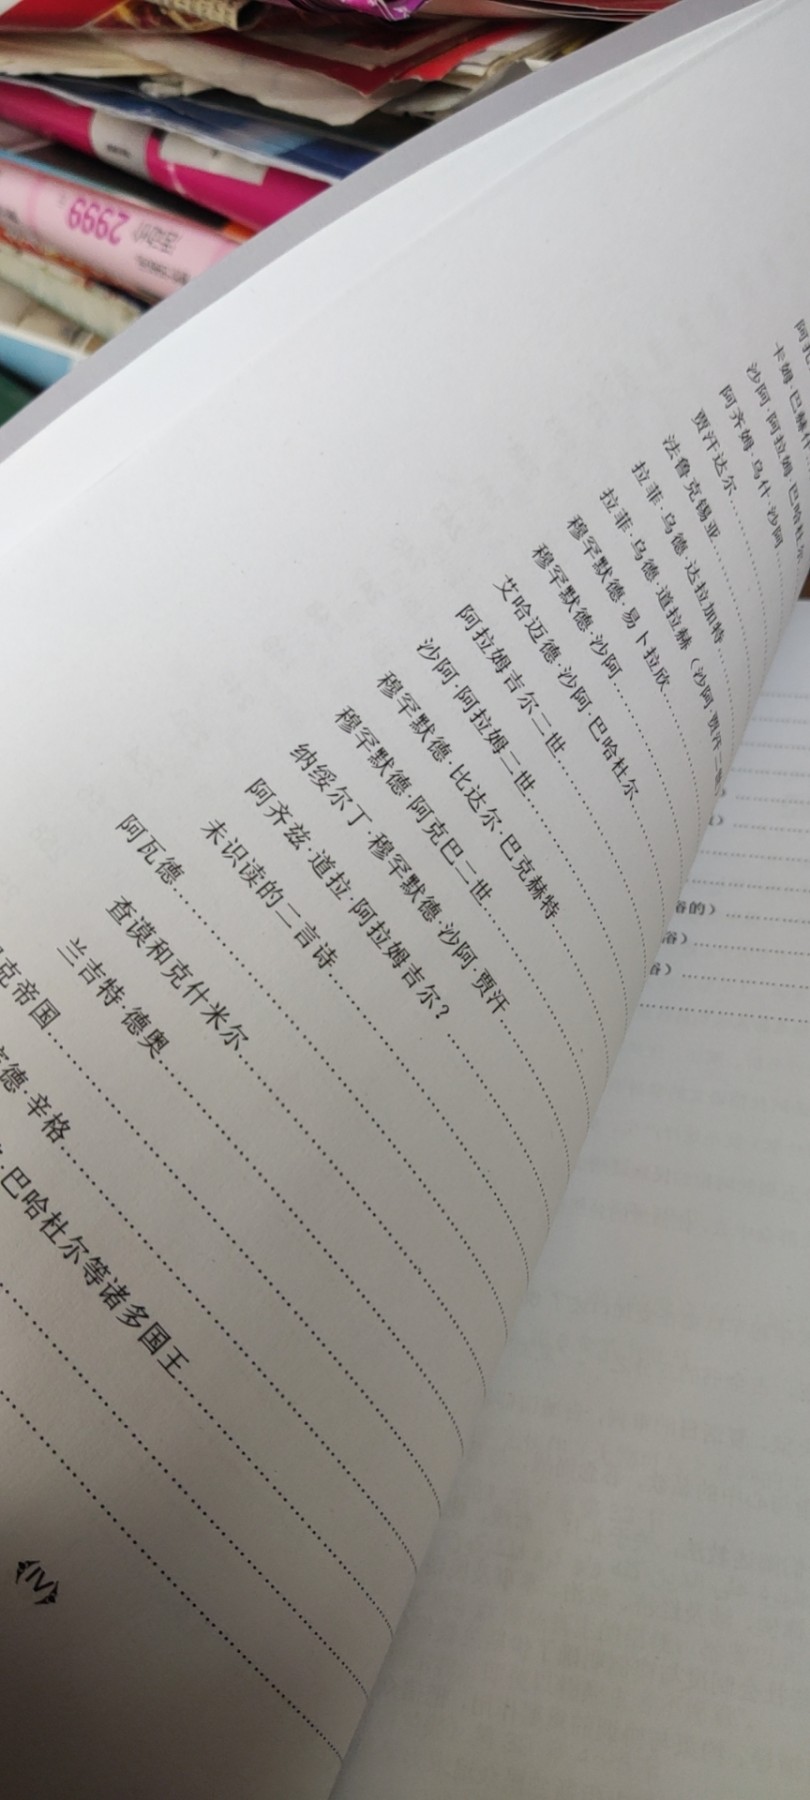 卡姆·巴赫什
沙阿·阿拉姆·巴哈杜尔
阿齐姆·乌什·沙阿
贾汗达尔
法鲁克锡亚
拉菲·乌德·达拉加特
拉菲·乌德·道拉赫（沙阿·贾汗二世
穆罕默德·易卜拉欣
穆罕默德·沙阿
艾哈迈德·沙阿·巴哈杜尔
阿拉姆吉尔二世
沙阿·阿拉姆二世
穆罕默德·比达尔·巴克赫特
穆罕默德·阿克巴二世
纳绥尔丁·穆罕默德·沙阿·贾汗
阿齐兹·道拉·阿拉姆吉尔？
未识读的二言诗
阿瓦德
查谟和克什米尔
兰吉特·德奥
克帝国
德·辛格
·巴哈杜尔等诸多国王
IV
俗的）
俗）
俗）
2999